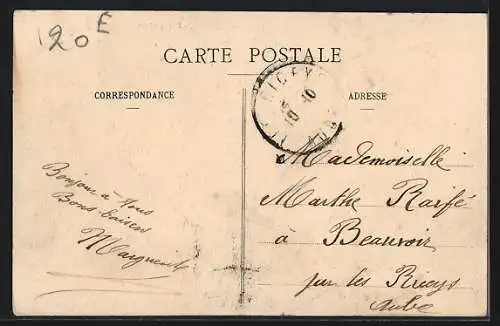 120 E
CARTE POSTALE
CORRESPONDANCE
ADRESSE
RICEYS
10 - 10
AUBE
Bonjour à vous
Bons baisers
Marguerite
Mademoiselle
Marthe Raifé
à Beauvoir
par les Riceys
Aube